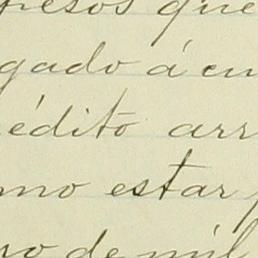 pesos que
gado á en
édito arr
mo estar p
ro de mil